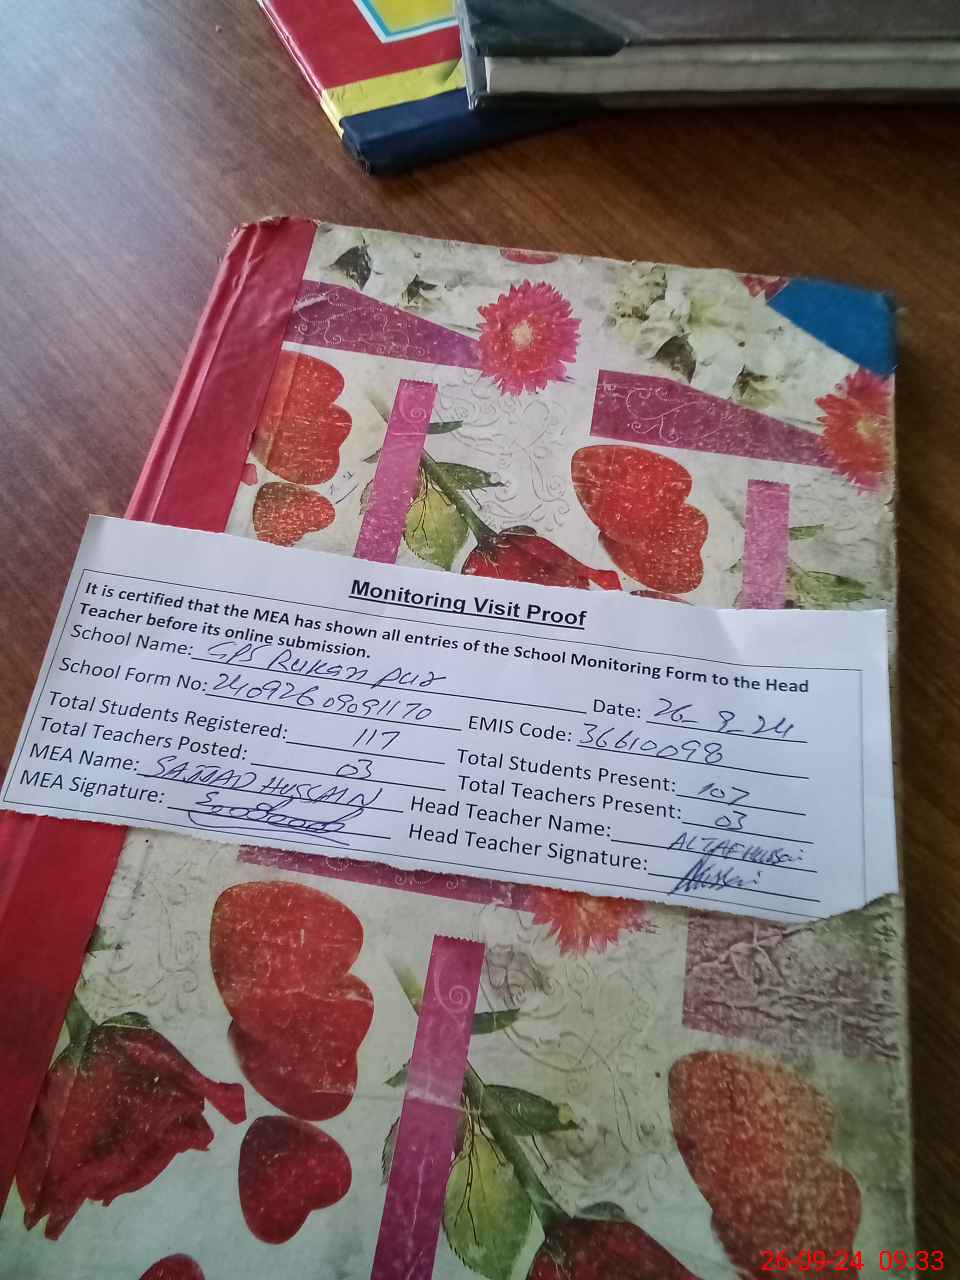 Monitoring Visit Proof
It is certified that the MEA has shown all entries of the School Monitoring Form to the Head
Teacher before its online submission.
School Name: GPS Rukan pur Date: 26_9_24
School Form No: 24092609091170 EMIS Code: 36610098
Total Students Registered: 117 Total Students Present: 107
Total Teachers Posted: 03 Total Teachers Present: 03
MEA Name: SAJJAD HUSSAIN Head Teacher Name: ALTAF Hussain
MEA Signature: Head Teacher Signature:
26-09-24 09:33